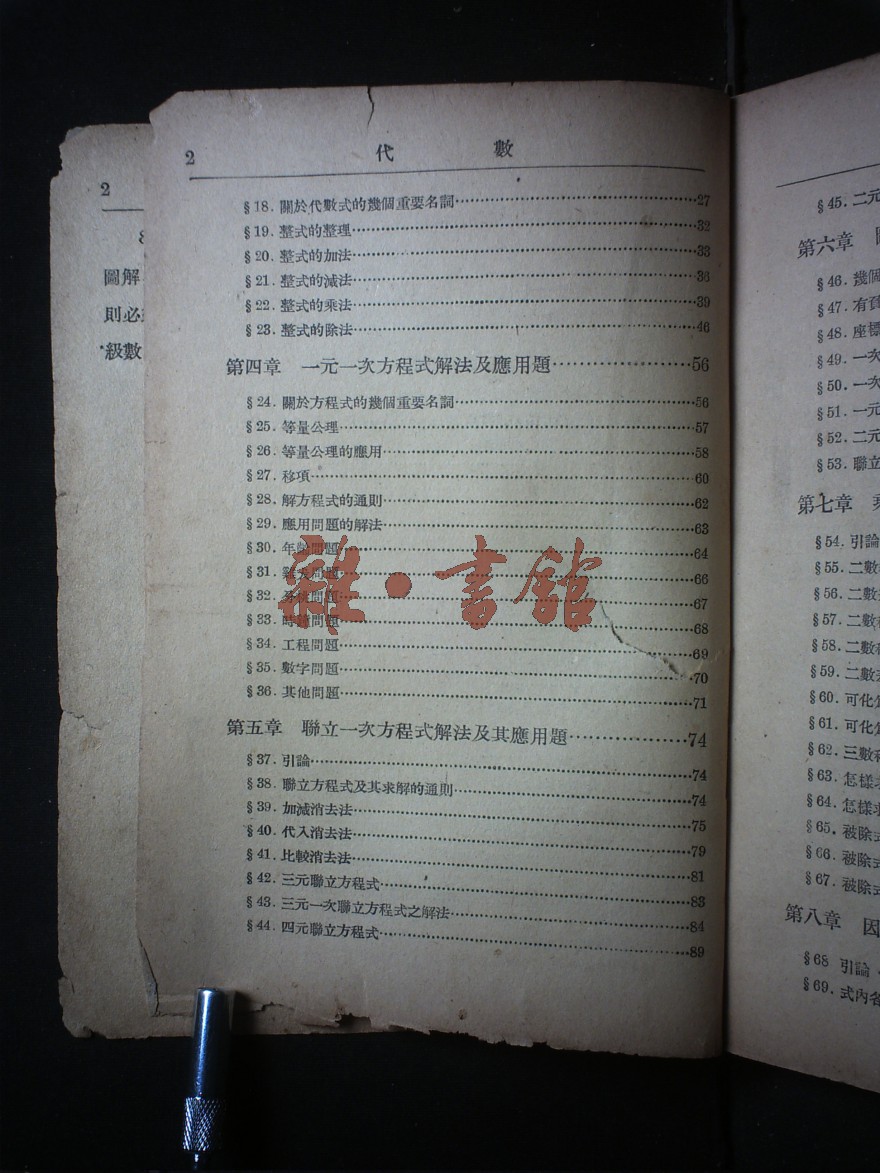 2
圖解
則必
級數
2 代數
§18. 關於代數式的幾個重要名詞⋯⋯27
§19. 整式的整理⋯⋯32
§20. 整式的加法⋯⋯33
§21. 整式的減法⋯⋯36
§22. 整式的乘法⋯⋯39
§23. 整式的除法⋯⋯46
第四章 一元一次方程式解法及應用題⋯⋯56
§24. 關於方程式的幾個重要名詞⋯⋯56
§25. 等量公理⋯⋯57
§26. 等量公理的應用⋯⋯58
§27. 移項⋯⋯60
§28. 解方程式的通則⋯⋯62
§29. 應用問題的解法⋯⋯63
§30. 年齡問題⋯⋯64
§31. 問題⋯⋯66
§32. 問題⋯⋯67
§33. 時鐘問題⋯⋯68
§34. 工程問題⋯⋯69
§35. 數字問題⋯⋯70
§36. 其他問題⋯⋯71
第五章 聯立一次方程式解法及其應用題⋯⋯74
§37. 引論⋯⋯74
§38. 聯立方程式及其求解的通則⋯⋯74
§39. 加減消去法⋯⋯75
§40. 代入消去法⋯⋯79
§41. 比較消去法⋯⋯81
§42. 三元聯立方程式⋯⋯83
§43. 三元一次聯立方程式之解法⋯⋯84
§44. 四元聯立方程式⋯⋯89
雜·書館
§45. 二元
第六章
§46. 幾個
§47. 有
§48. 座標
§49. 一次
§50. 一次
§51. 一元
§52. 二元
§53. 聯立
第七章
§54. 引論
§55. 二數
§56. 二數
§57. 二數
§58. 二數
§59. 二數
§60. 可化
§61. 可化
§62. 三數
§63. 怎樣
§64. 怎樣
§65. 被除式
§66. 被除式
§67. 被除式
第八章 因
§68 引論
§69. 式內各